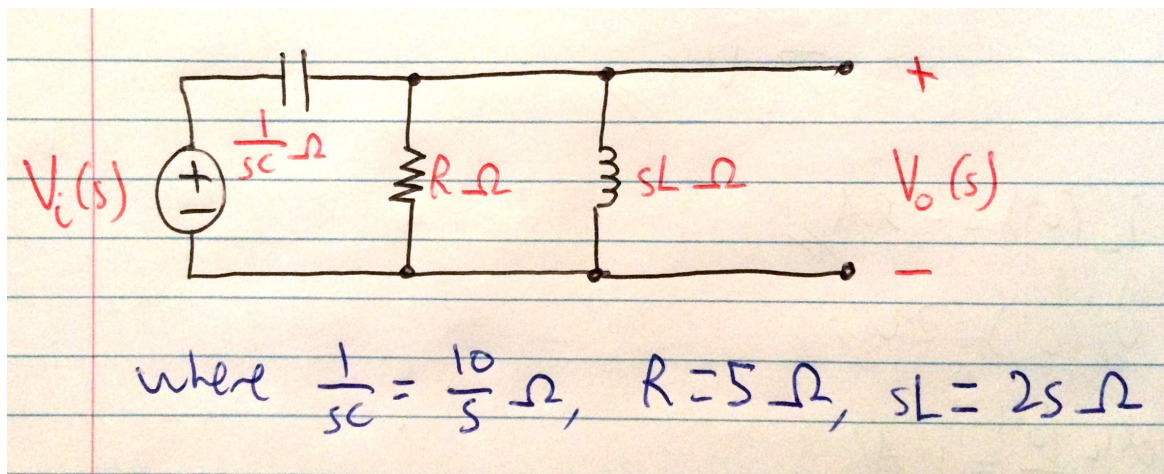 +
1/sc Ω
V_i(s)
+
−
R Ω
sL Ω
V_o(s)
−
where 1/sc = 10/s Ω, R = 5 Ω, sL = 2s Ω